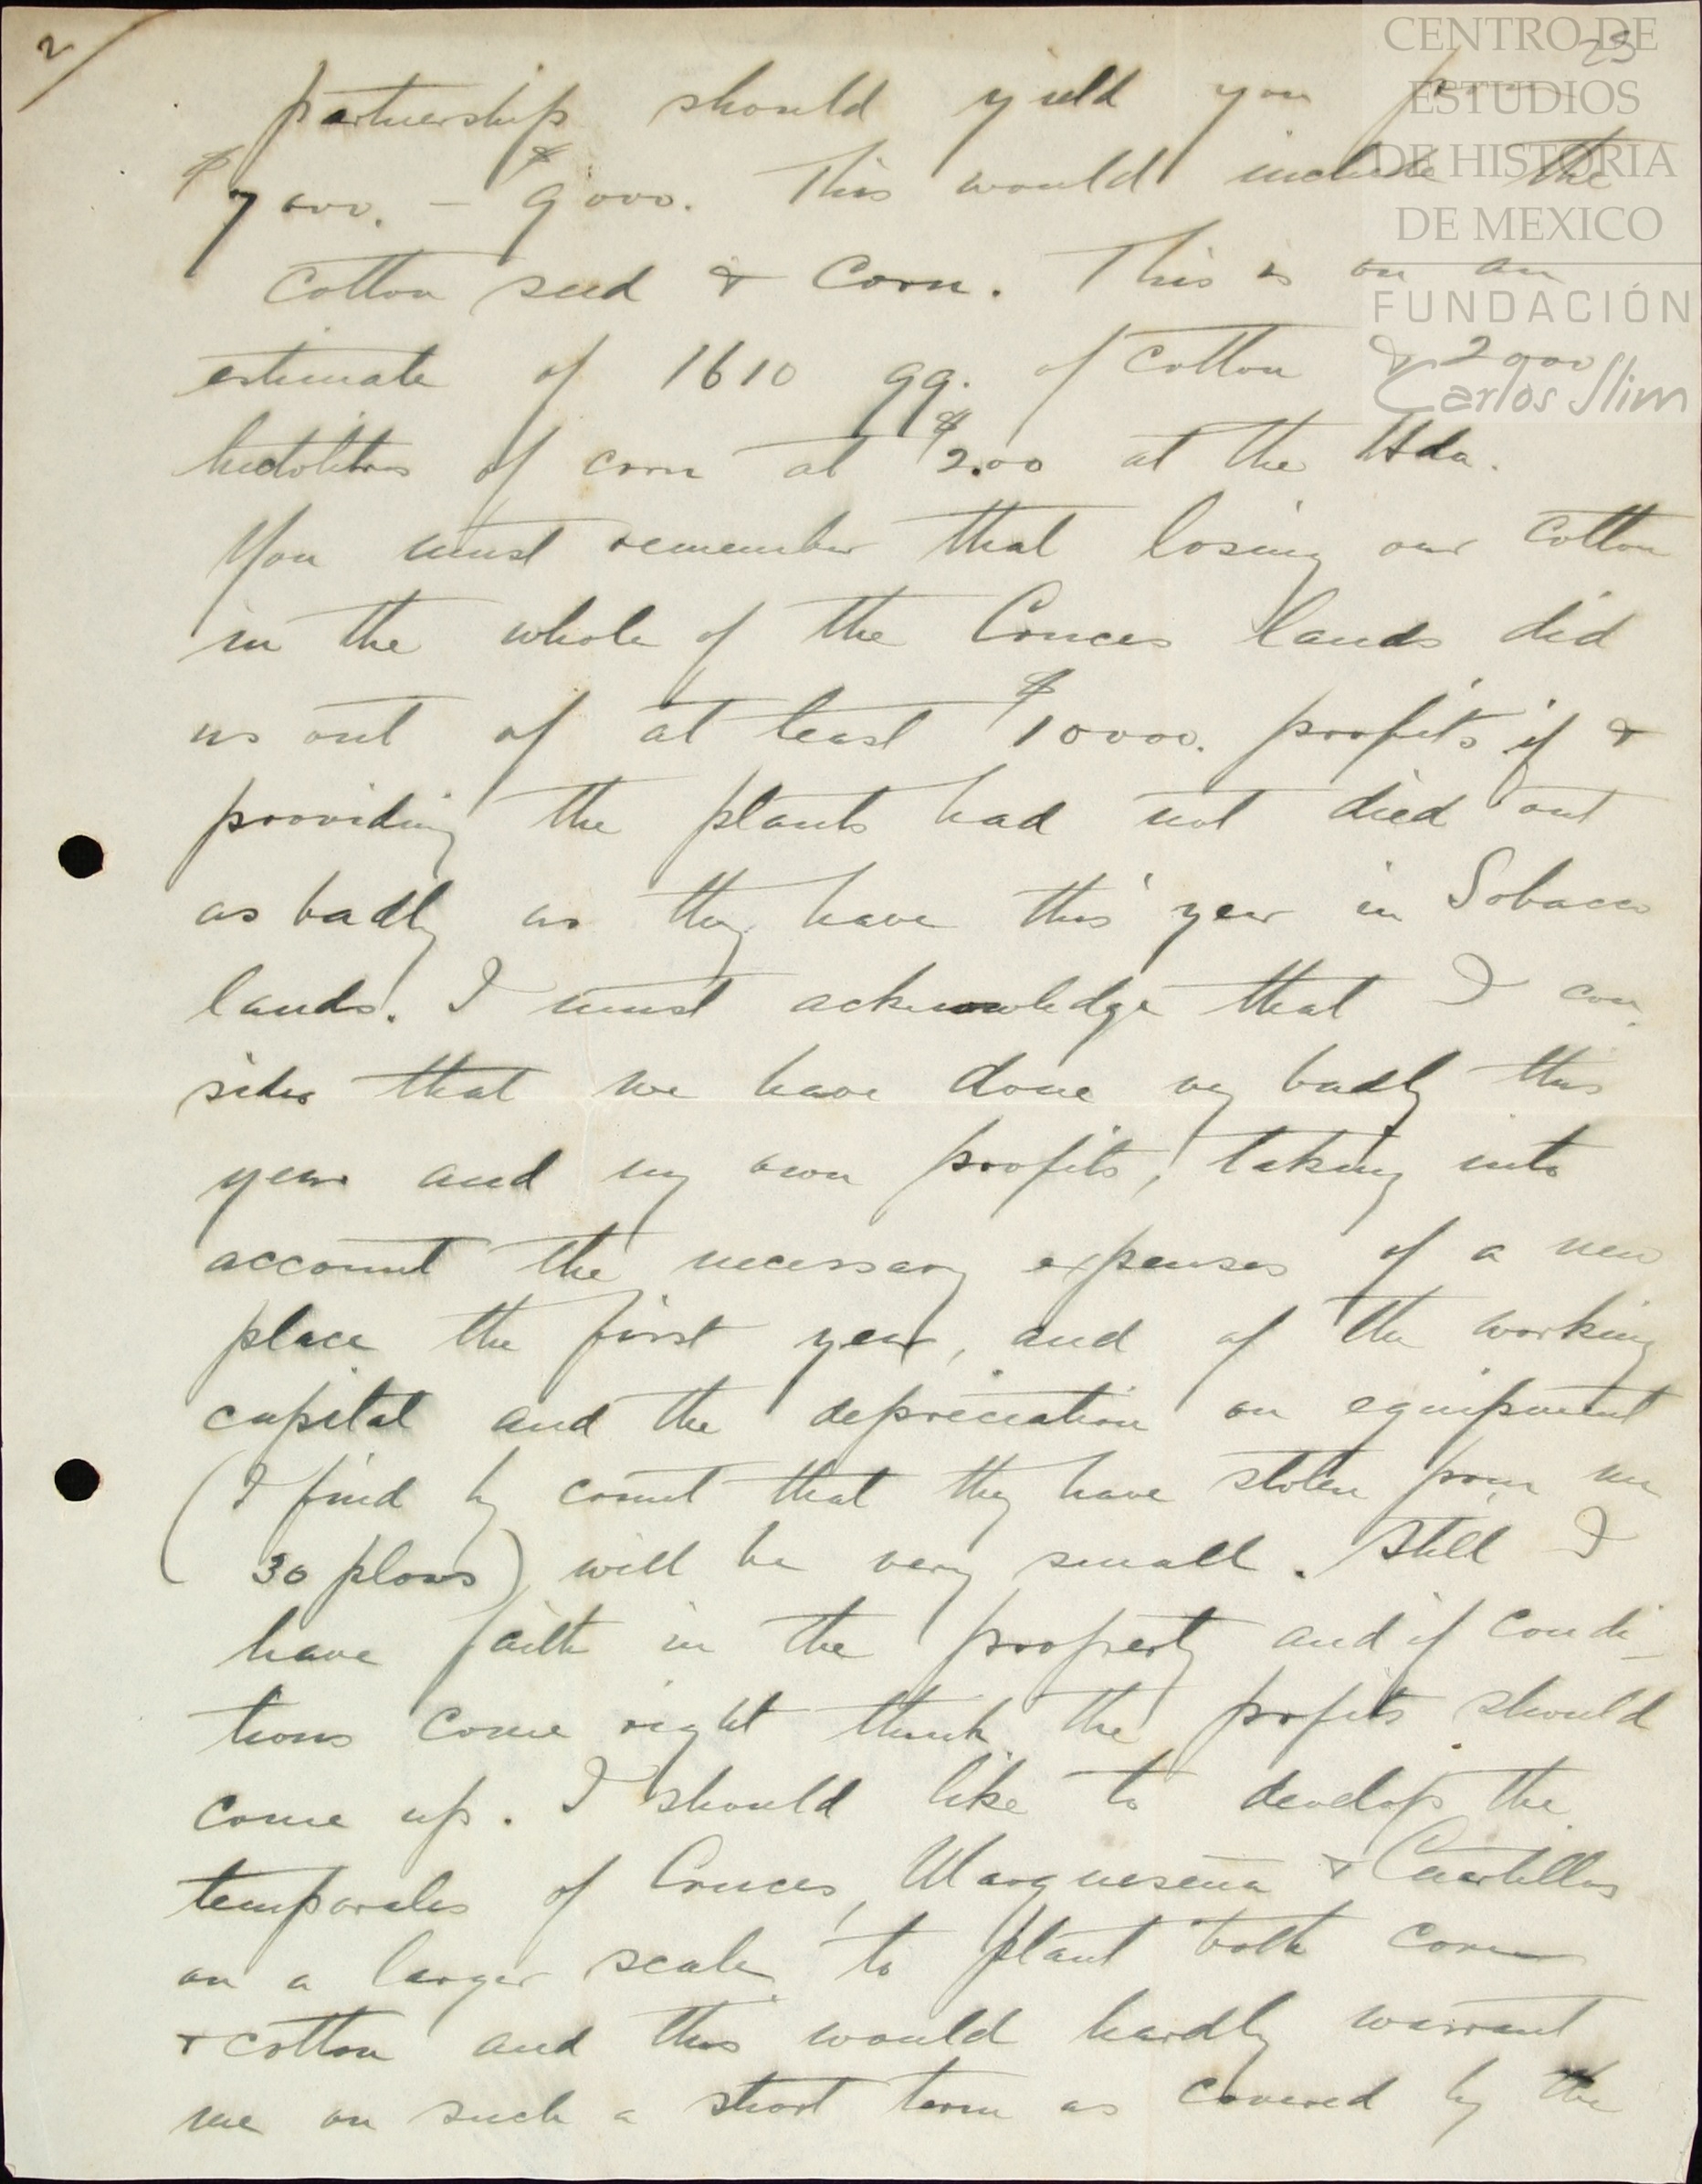 2/
23
CENTRO DE
ESTUDIOS
DE HISTORIA
DE MEXICO
FUNDACIÓN
Carlos Slim
partnership should yield you
$7000. – $9000. This would include the
cotton seed & Corn. This is on an
estimate of 1610 qq. of cotton & 2000
hectolitres of corn at $2.00 at the Hda.
You must remember that losing our cotton
in the whole of the Cruces lands did
us out of at least $10000. profits if &
providing the plants had not died out
as badly as they have this year in Sobaco
lands. I must acknowledge that I con-
sider that we have done vy badly this
year and my own profits, taking into
account the necessary expenses of a new
place the first year, and of the working
capital and the depreciation on equipment
(I find by count that they have stolen from me
30 plows) will be very small. Still I
have faith in the property and if condi-
tions come right think the profits should
come up. I should like to develop the
temporales of Cruces, Marqueseña &
on a larger scale to plant both corn
& cotton and this would hardly warrant
me on such a short term as covered by the